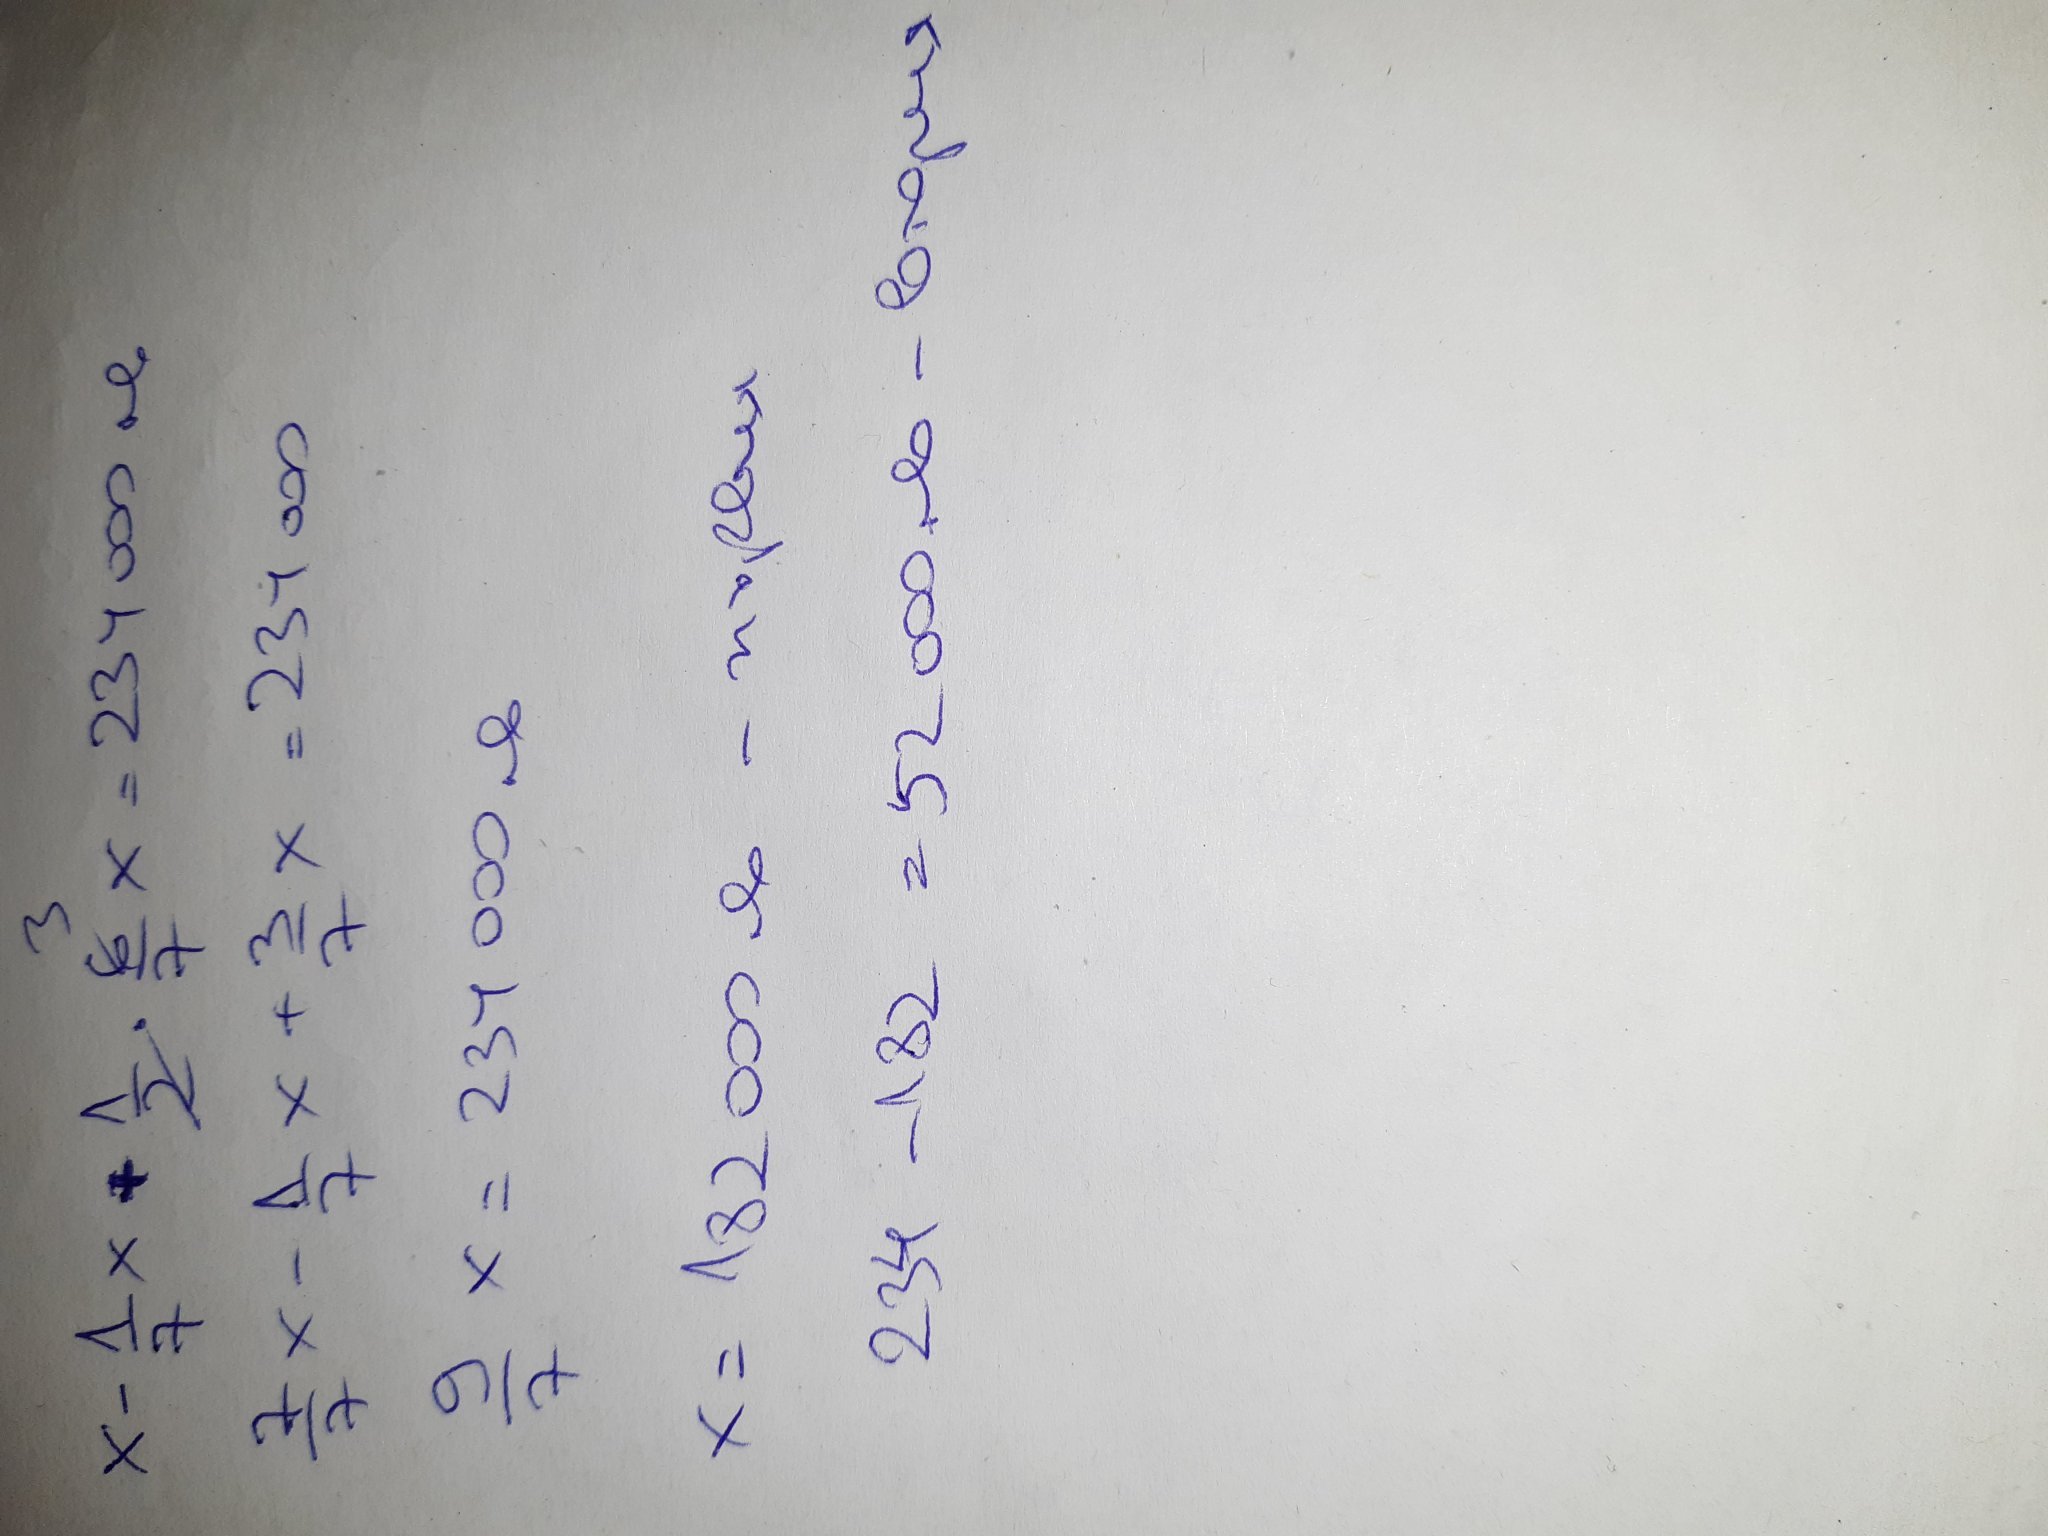 x - 1/7 x + 1/2 · 6/7 x = 234 000 лв 3
7/7 x - 1/7 x + 3/7 x = 234 000
9/7 x = 234 000 лв
x = 182 000 лв - първия
234 - 182 = 52 000 лв - втория